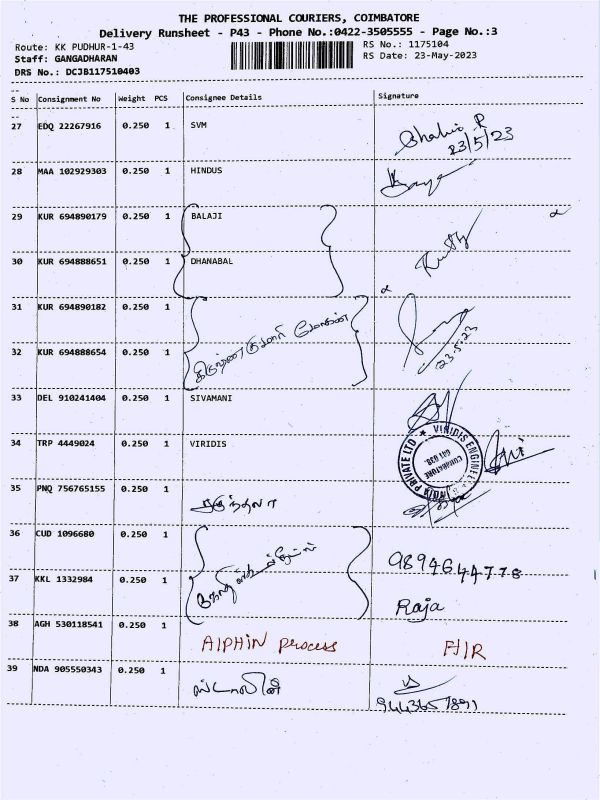 THE PROFESSIONAL COURIERS, COIMBATORE
Delivery Runsheet - P43 - Phone No.:0422-3505555 - Page No.:3
Route: KK PUDHUR-1-43 RS No.: 1175104
Staff: GANGADHARAN RS Date: 23-May-2023
DRS No.: DCJB117510403
S No Consignment No Weight PCS Consignee Details Signature
27 EDQ 22267916 0.250 1 SVM
23/5/23
28 MAA 102929303 0.250 1 HINDUS
29 KUR 694890179 0.250 1 BALAJI
30 KUR 694888651 0.250 1 DHANABAL
31 KUR 694890182 0.250 1
32 KUR 694888654 0.250 1
23.5.23
33 DEL 910241404 0.250 1 SIVAMANI
34 TRP 4449024 0.250 1 VIRIDIS
VIRIDIS ENGINEERING INDIA PRIVATE LTD
COIMBATORE
641 038
35 PNQ 756765155 0.250 1
36 CUD 1096680 0.250 1
9894644778
37 KKL 1332984 0.250 1
Raja
38 AGH 530118541 0.250 1 AIPHIN process
39 NDA 905550343 0.250 1 ஸ்டாலின்